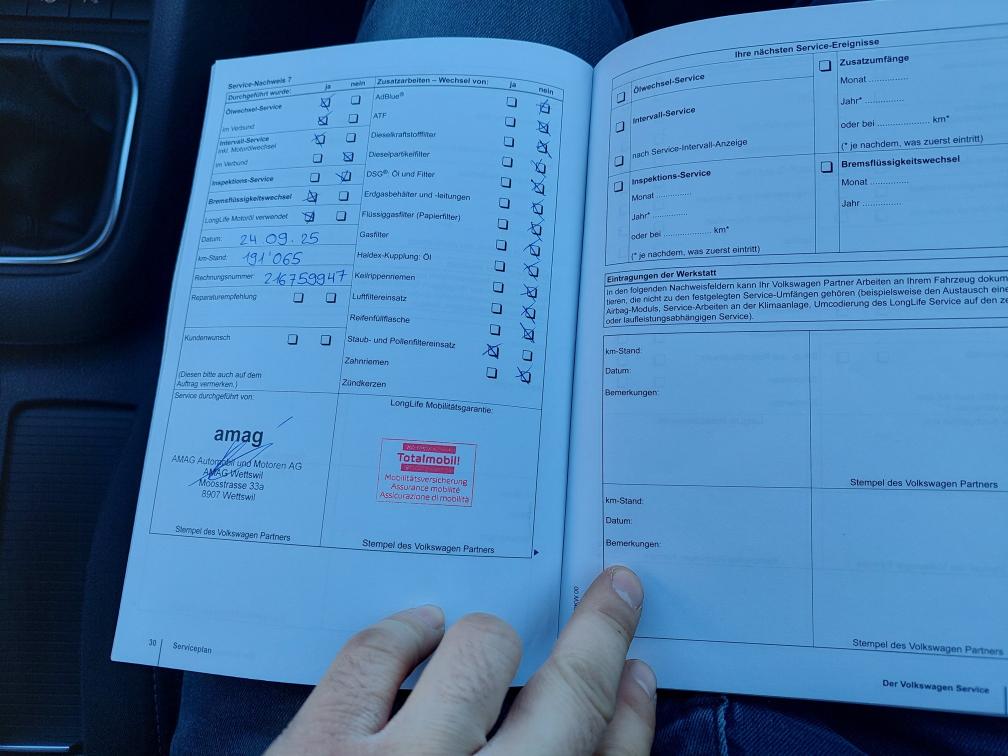 Service-Nachweis 7
Durchgeführt wurde: ja nein
Ölwechsel-Service
im Verbund
Intervall-Service
inkl. Motorölwechsel
im Verbund
Inspektions-Service
Bremsflüssigkeitswechsel
LongLife Motoröl verwendet
Datum: 24.09.25
km-Stand: 191'065
Rechnungsnummer: 216759947
Reparaturempfehlung
Kundenwunsch
(Diesen bitte auch auf dem
Auftrag vermerken.)
Zusatzarbeiten – Wechsel von: ja nein
AdBlue®
ATF
Dieselkraftstofffilter
Dieselpartikelfilter
DSG®: Öl und Filter
Erdgasbehälter und -leitungen
Flüssiggasfilter (Papierfilter)
Gasfilter
Haldex-Kupplung: Öl
Keilrippenriemen
Luftfiltereinsatz
Reifenfüllflasche
Staub- und Pollenfiltereinsatz
Zahnriemen
Zündkerzen
Service durchgeführt von:
amag
AMAG Automobil und Motoren AG
AMAG Wettswil
Moosstrasse 33a
8907 Wettswil
Stempel des Volkswagen Partners
LongLife Mobilitätsgarantie:
Totalmobil!
Mobilitätsversicherung
Assurance mobilité
Assicurazione di mobilità
Stempel des Volkswagen Partners
30 Serviceplan
Ihre nächsten Service-Ereignisse
Ölwechsel-Service
Intervall-Service
nach Service-Intervall-Anzeige
Inspektions-Service
Monat ............
Jahr* ............
oder bei ............ km*
(* je nachdem, was zuerst eintritt)
Zusatzumfänge
Monat ............
Jahr* ............
oder bei ............ km*
(* je nachdem, was zuerst eintritt)
Bremsflüssigkeitswechsel
Monat ............
Jahr ............
Eintragungen der Werkstatt
In den folgenden Nachweisfeldern kann Ihr Volkswagen Partner Arbeiten an Ihrem Fahrzeug dokum
tieren, die nicht zu den festgelegten Service-Umfängen gehören (beispielsweise den Austausch eine
Airbag-Moduls, Service-Arbeiten an der Klimaanlage, Umcodierung des LongLife Service auf den ze
oder laufleistungsabhängigen Service).
km-Stand:
Datum:
Bemerkungen:
Stempel des Volkswagen Partners
km-Stand:
Datum:
Bemerkungen:
Stempel des Volkswagen Partners
Der Volkswagen Service